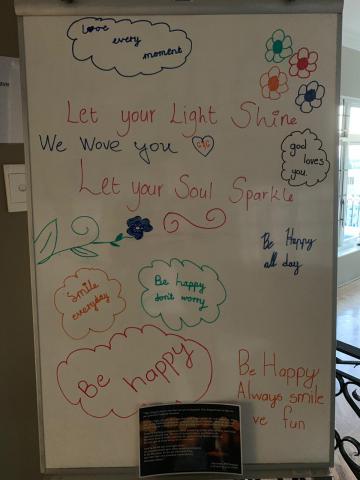 Love
every
moment
Let your Light Shine
We Wove you
god
loves
you.
Let your Soul Sparkle
Be Happy
all day
Smile
everyday
Be happy
don't worry
Be happy
Be Happy
Always smile
ve fun